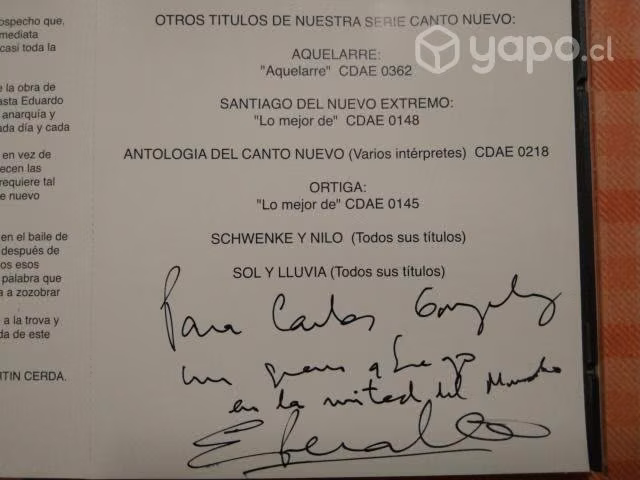 ospecho que,
mediata
casi toda la
e la obra de
asta Eduardo
anarquía y
ada día y cada
en vez de
ecen las
requiere tal
e nuevo
en el baile de
después de
os esos
palabra que
a a zozobrar
a la trova y
da de este
RTIN CERDA.
yapo.cl
OTROS TITULOS DE NUESTRA SERIE CANTO NUEVO:
AQUELARRE:
"Aquelarre" CDAE 0362
SANTIAGO DEL NUEVO EXTREMO:
"Lo mejor de" CDAE 0148
ANTOLOGIA DEL CANTO NUEVO (Varios intérpretes) CDAE 0218
ORTIGA:
"Lo mejor de" CDAE 0145
SCHWENKE Y NILO (Todos sus títulos)
SOL Y LLUVIA (Todos sus títulos)
Para Carlos Gonzalez
un gran abrazo
en la mitad del Mundo